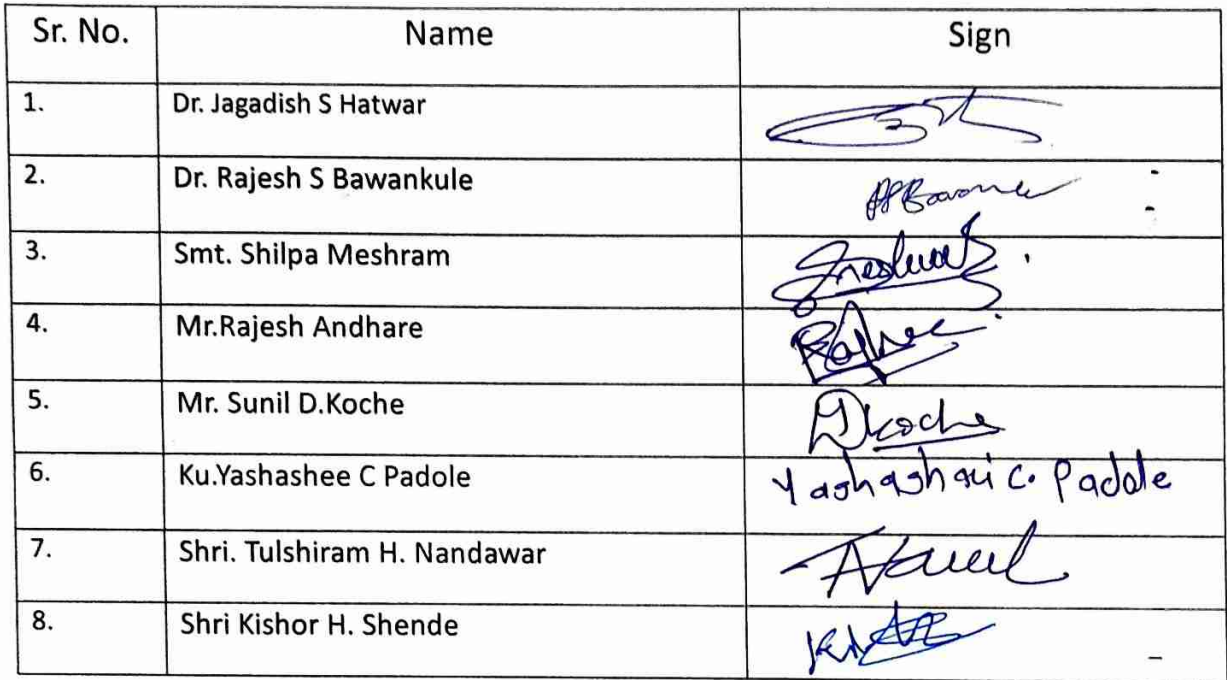 Sr. No. Name Sign
1. Dr. Jagadish S Hatwar
2. Dr. Rajesh S Bawankule
3. Smt. Shilpa Meshram
4. Mr.Rajesh Andhare
5. Mr. Sunil D.Koche Dkoche
6. Ku.Yashashee C Padole Yashashri C. Padole
7. Shri. Tulshiram H. Nandawar
8. Shri Kishor H. Shende